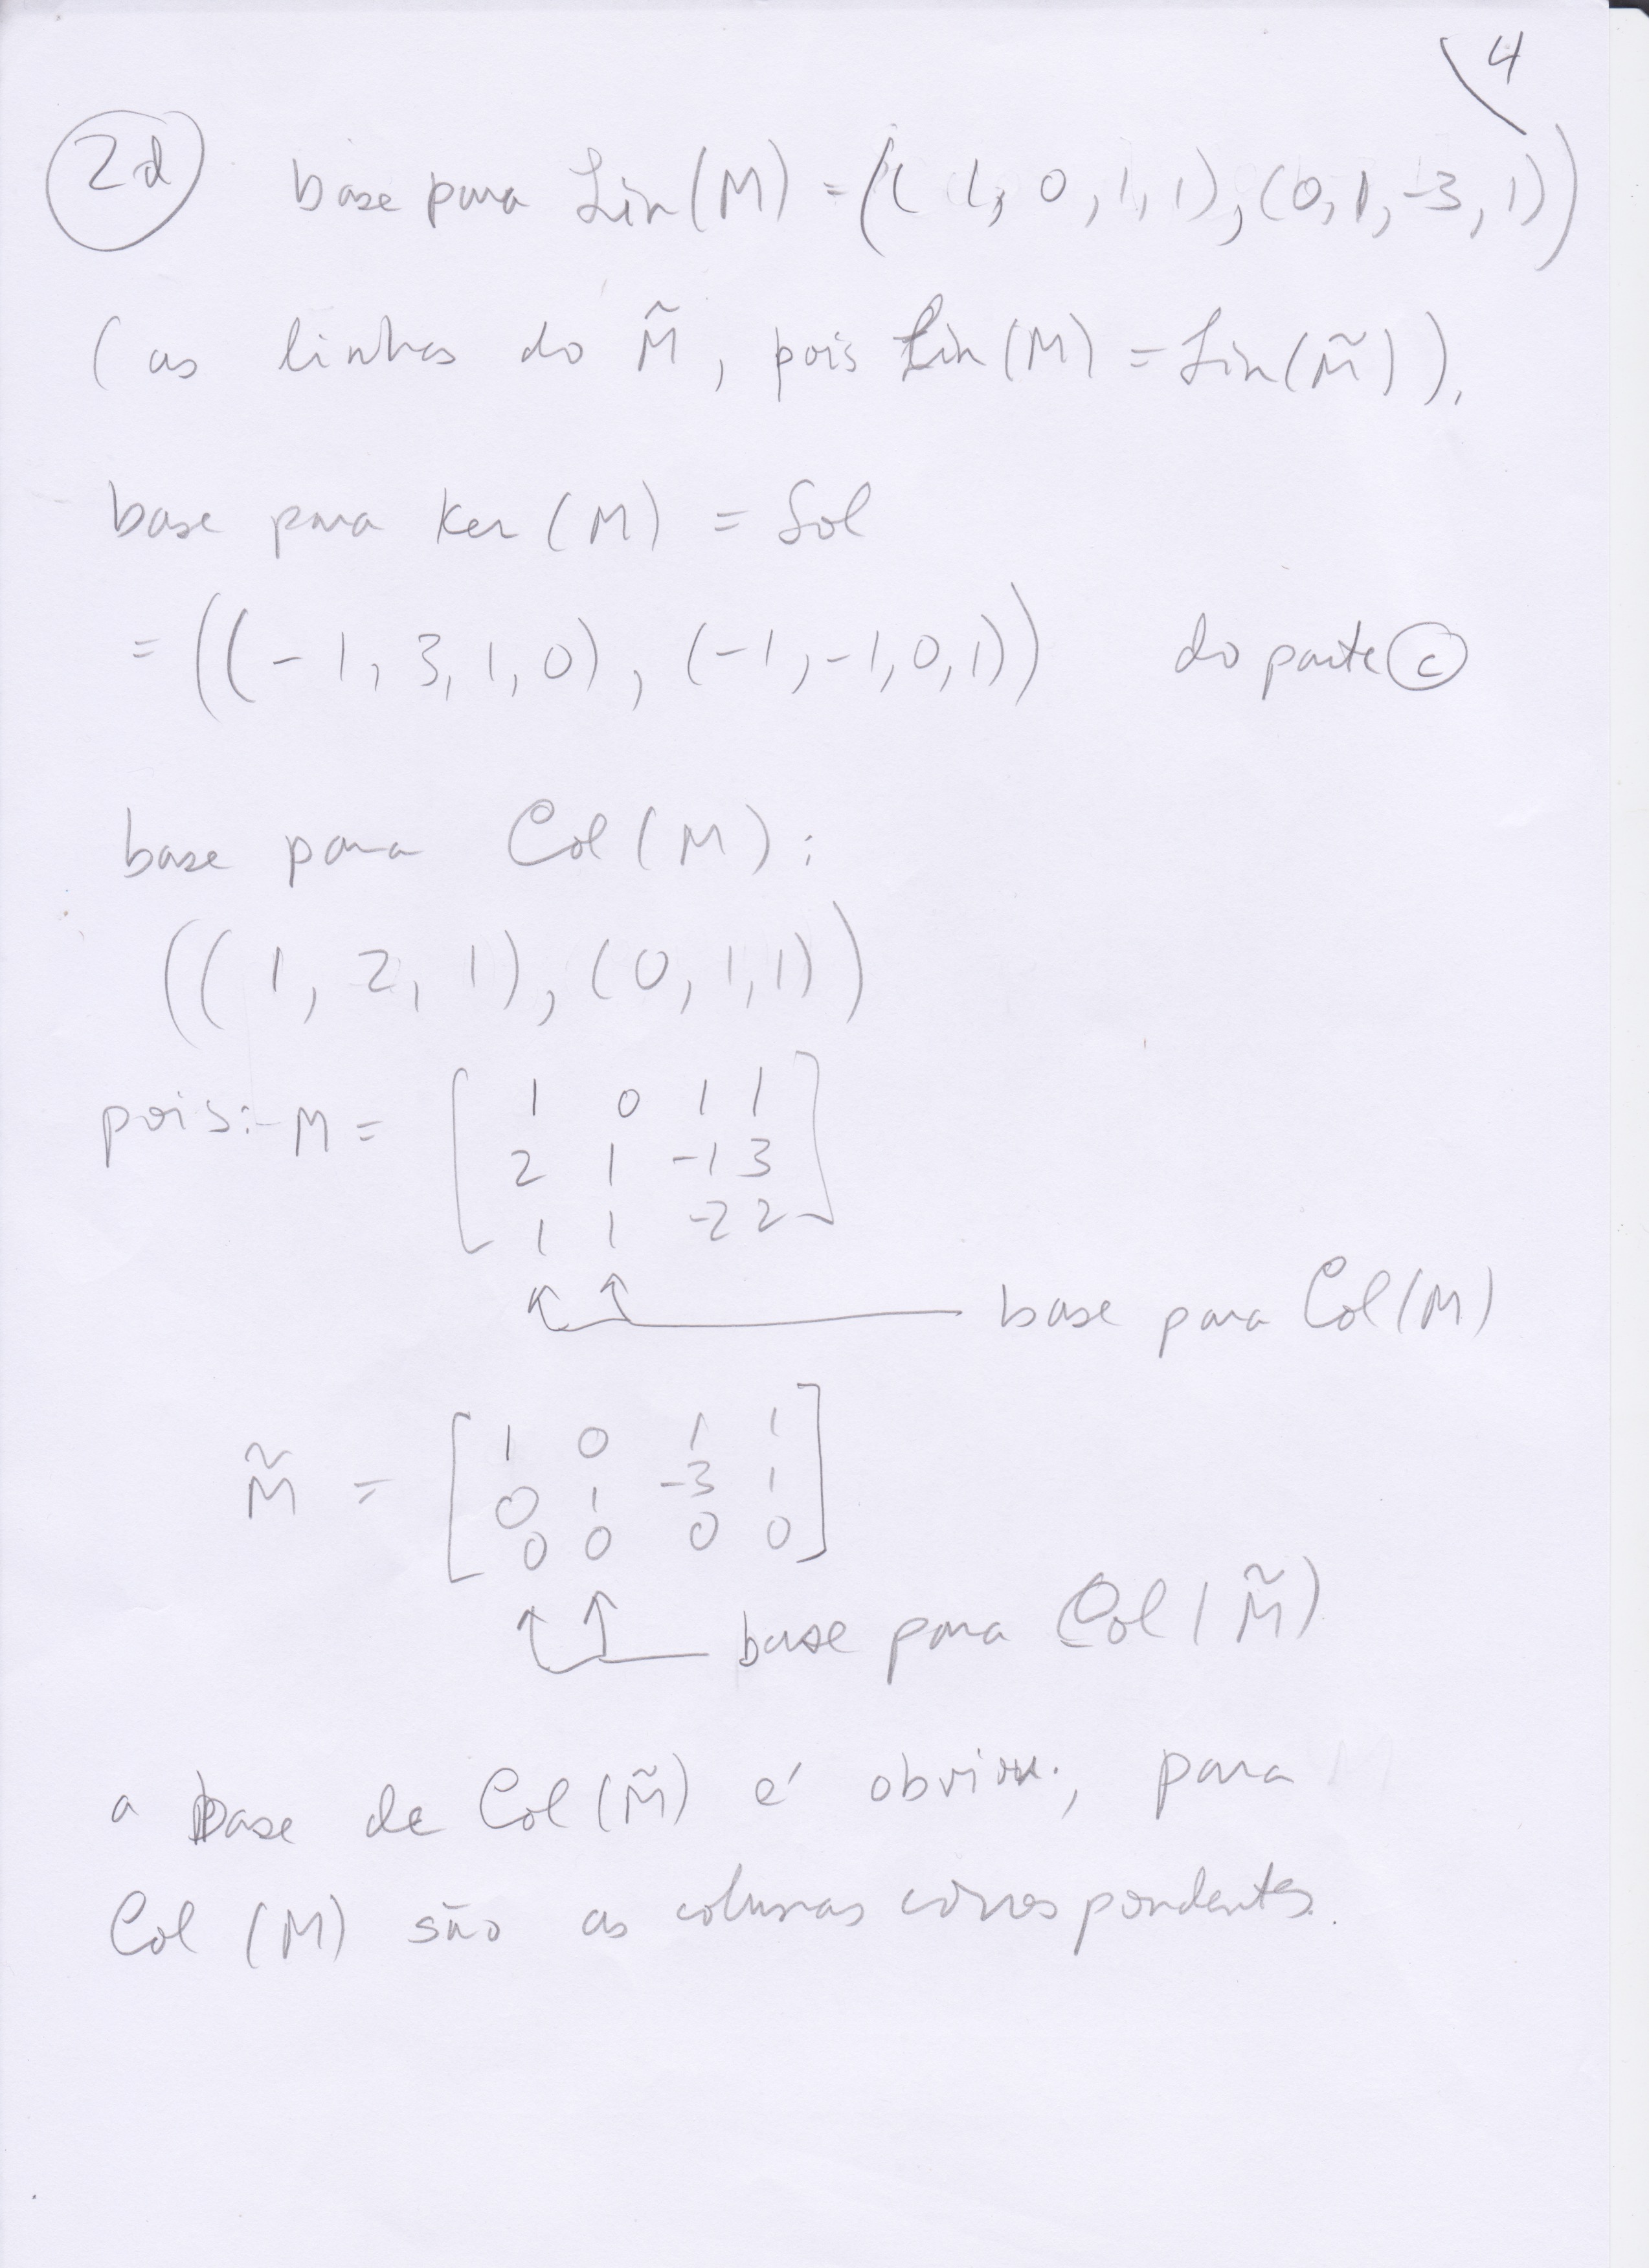 4
2d base para Lin(M) = ((1, 0, 1, 1), (0, 1, -3, 1))
(as linhas do M̃, pois Lin(M) = Lin(M̃)).
base para Ker(M) = Sol
= ((-1, 3, 1, 0), (-1, -1, 0, 1)) do parte c
base para Col(M):
((1, 2, 1), (0, 1, 1))
pois:- M = [ 1 0 1 1
2 1 -1 3
1 1 -2 2 ]
base para Col(M)
M̃ = [ 1 0 1 1
0 1 -3 1
0 0 0 0 ]
base para Col(M̃)
a base de Col(M̃) é, para
Col(M) são as colunas correspondentes.